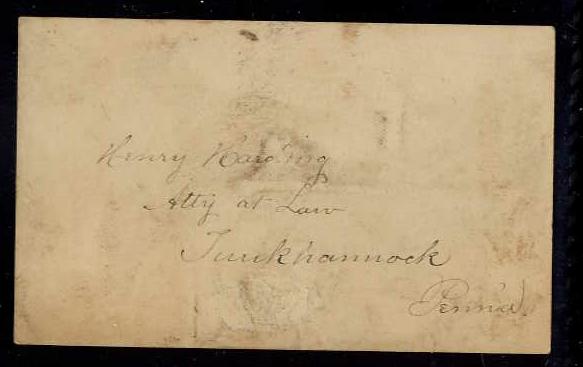 Henry Harding
Atty at Law
Tunkhannock
Penn'a.